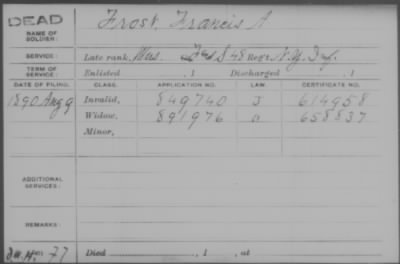 DEAD
Frost, Francis A
NAME OF SOLDIER:
SERVICE: Late rank, Mus. F&S 48 Reg't N.Y. Inf.
TERM OF SERVICE: Enlisted , 1 Discharged , 1
DATE OF FILING. CLASS. APPLICATION NO. LAW. CERTIFICATE NO.
1890 Aug 9 Invalid, 849740 J 614958
Widow, 891976 658837
Minor,
ADDITIONAL SERVICES:
REMARKS:
77 Died , 1 , at